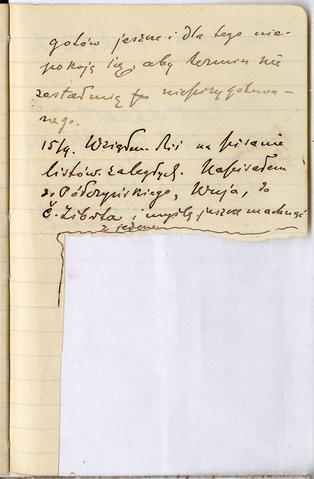 gotów jeszcze i dla tego nie-
pokoją się, aby termin nie
zastał mię nieprzygotowa-
nego.
15/9. Wziąłem się na pisanie
listów zaległych. Napisałem
do Półczyńskiego, Wuja, do
Č. Zibrta i myślę jeszcze machnąć
z jeden